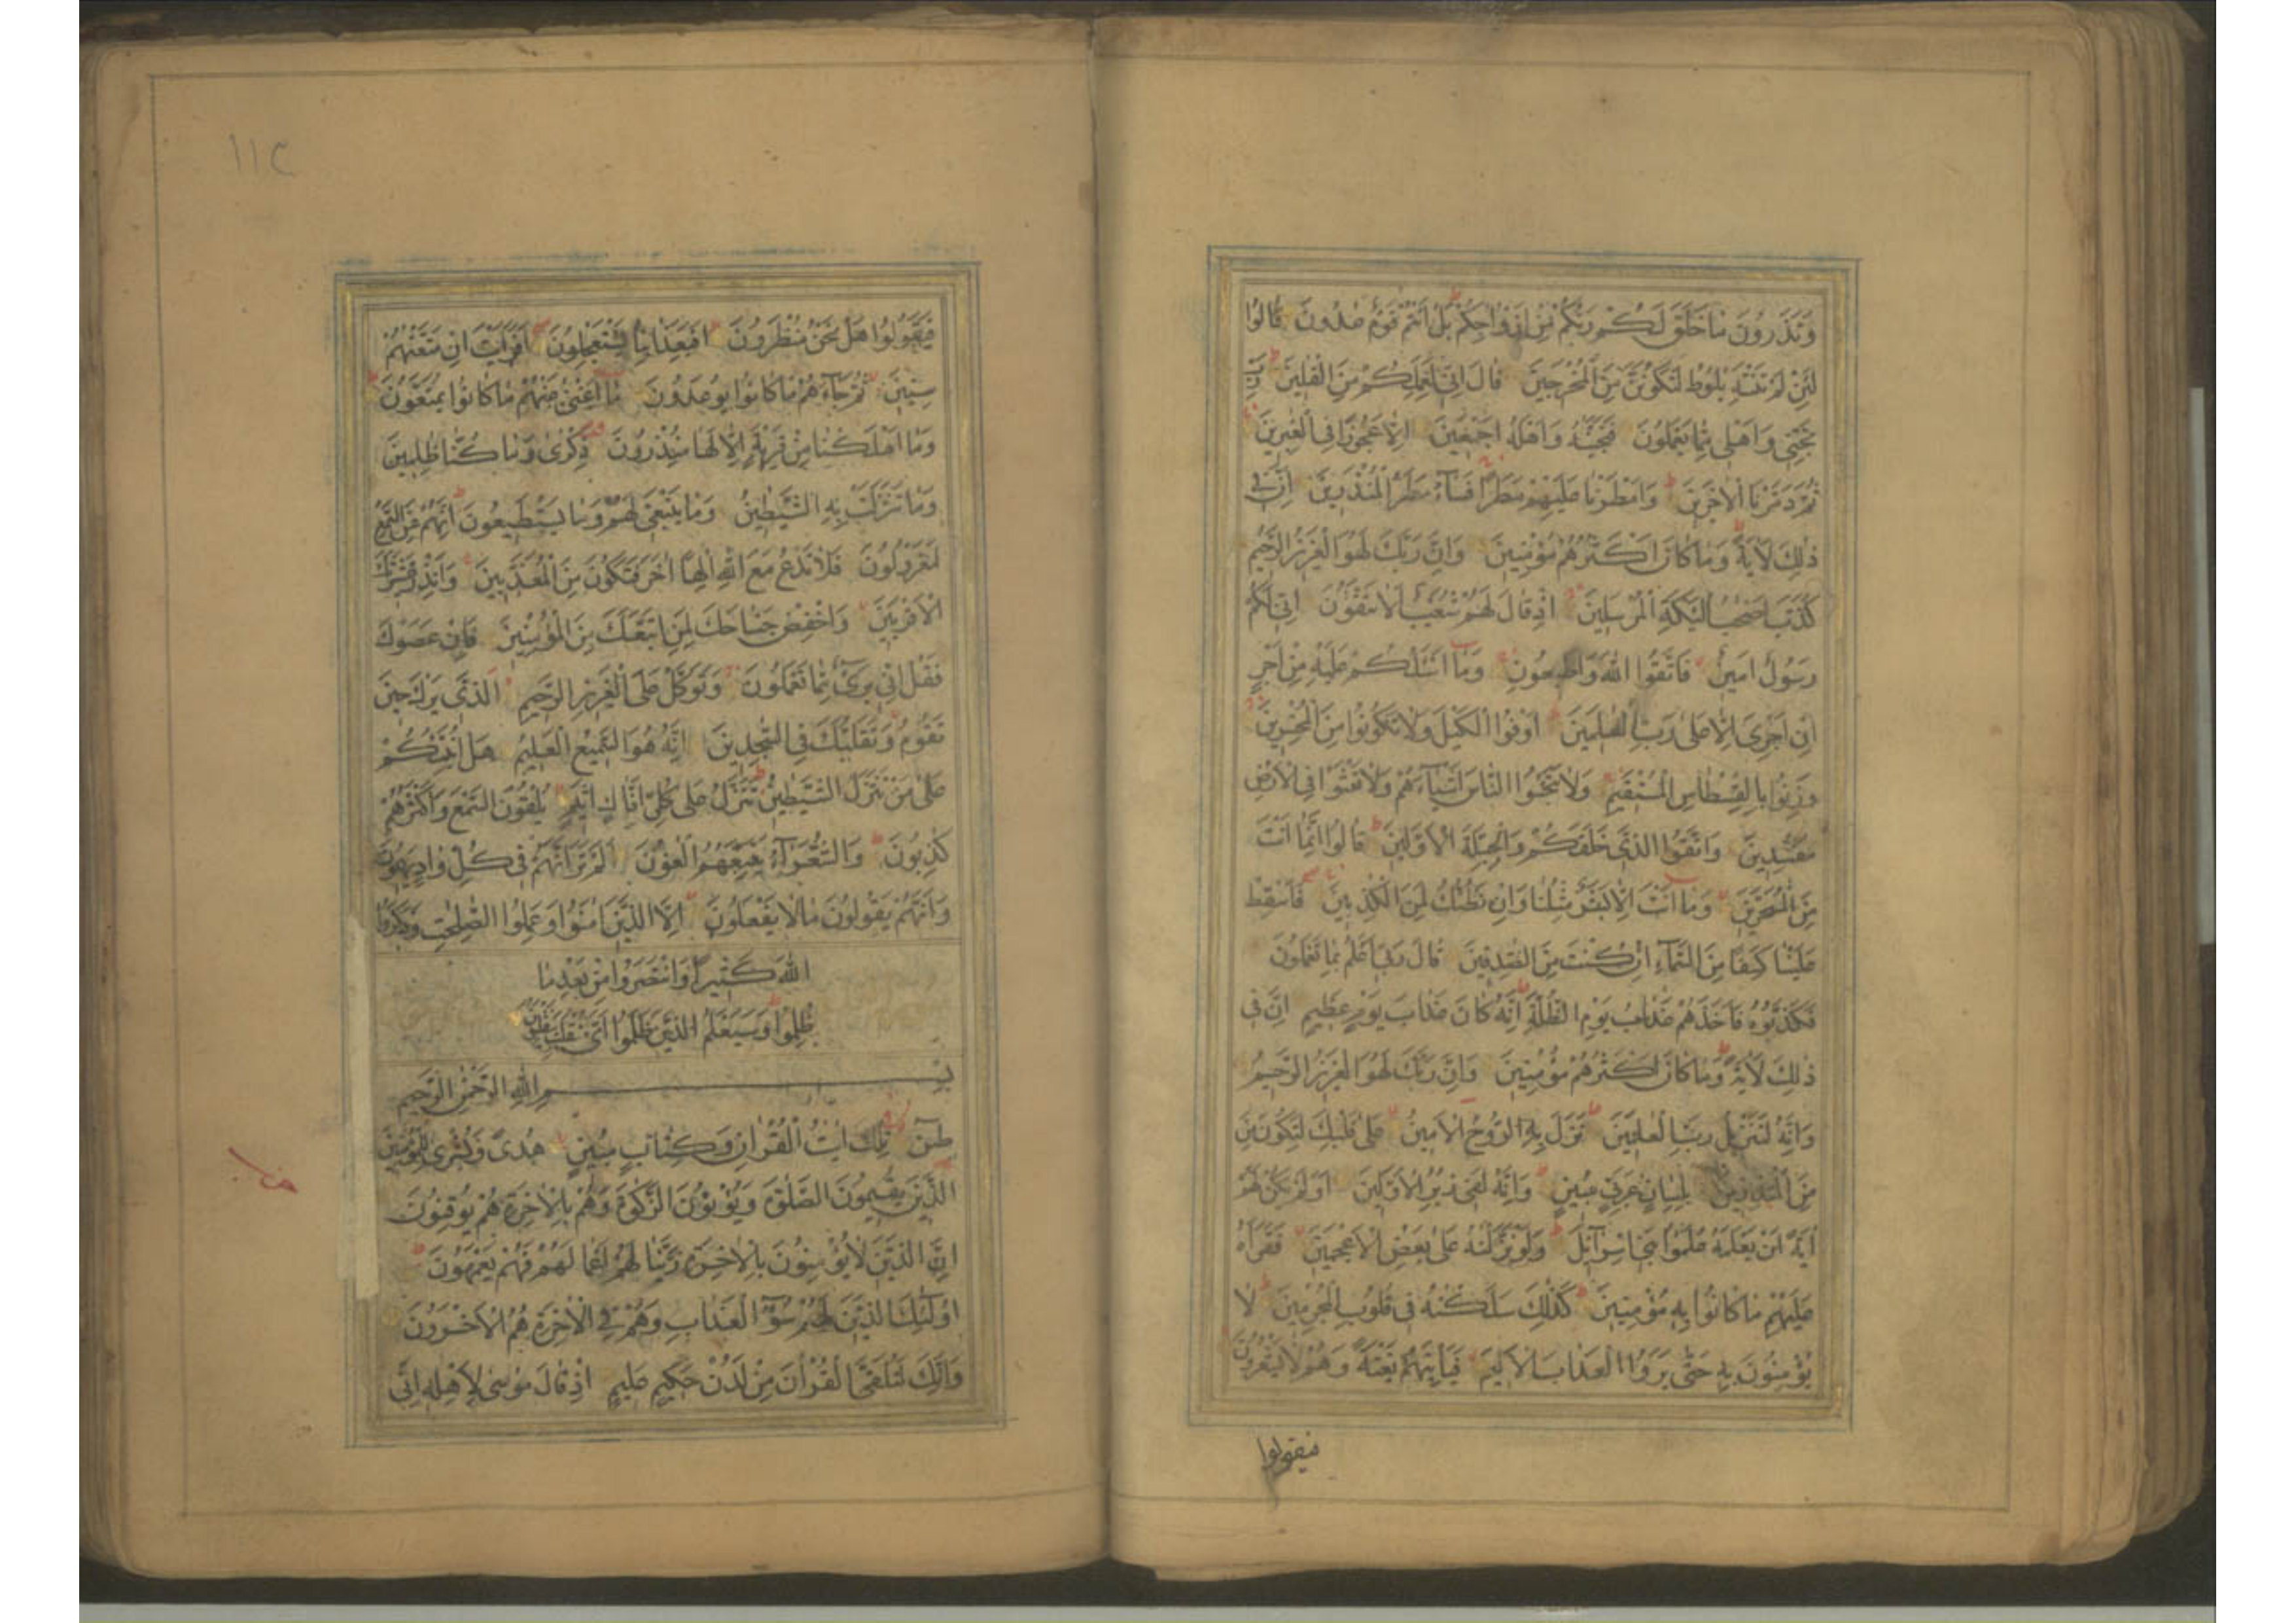 وَتَذَرُونَ مَا خَلَقَ لَكُمْ رَبُّكُمْ مِنْ اَزْوَاجِكُمْ بَلْ اَنْتُمْ قَوْمٌ عَادُونَ قَالُوا
لَئِنْ لَمْ تَنْتَهِ يٰلُوطُ لَتَكُونَنَّ مِنَ الْمُخْرَجِينَ قَالَ اِنِّي لِعَمَلِكُمْ مِنَ الْقَالِينَ رَبِّ
نَجِّنِي وَاَهْلِي مِمَّا يَعْمَلُونَ فَنَجَّيْنٰهُ وَاَهْلَهُ اَجْمَعِينَ اِلَّا عَجُوزًا فِي الْغٰبِرِينَ
ثُمَّ دَمَّرْنَا الْاٰخَرِينَ وَاَمْطَرْنَا عَلَيْهِمْ مَطَرًا فَسَآءَ مَطَرُ الْمُنْذَرِينَ اِنَّ فِي
ذٰلِكَ لَاٰيَةً وَمَا كَانَ اَكْثَرُهُمْ مُؤْمِنِينَ وَاِنَّ رَبَّكَ لَهُوَ الْعَزِيزُ الرَّحِيمُ
كَذَّبَ اَصْحٰبُ لْـَٔيْكَةِ الْمُرْسَلِينَ اِذْ قَالَ لَهُمْ شُعَيْبٌ اَلَا تَتَّقُونَ اِنِّي لَكُمْ
رَسُولٌ اَمِينٌ فَاتَّقُوا اللّٰهَ وَاَطِيعُونِ وَمَآ اَسْئَلُكُمْ عَلَيْهِ مِنْ اَجْرٍ
اِنْ اَجْرِيَ اِلَّا عَلٰى رَبِّ الْعٰلَمِينَ اَوْفُوا الْكَيْلَ وَلَا تَكُونُوا مِنَ الْمُخْسِرِينَ
وَزِنُوا بِالْقِسْطَاسِ الْمُسْتَقِيمِ وَلَا تَبْخَسُوا النَّاسَ اَشْيَآءَهُمْ وَلَا تَعْثَوْا فِي الْاَرْضِ
مُفْسِدِينَ وَاتَّقُوا الَّذِي خَلَقَكُمْ وَالْجِبِلَّةَ الْاَوَّلِينَ قَالُوا اِنَّمَا اَنْتَ
مِنَ الْمُسَحَّرِينَ وَمَا اَنْتَ اِلَّا بَشَرٌ مِثْلُنَا وَاِنْ نَظُنُّكَ لَمِنَ الْكٰذِبِينَ فَاَسْقِطْ
عَلَيْنَا كِسَفًا مِنَ السَّمَآءِ اِنْ كُنْتَ مِنَ الصّٰدِقِينَ قَالَ رَبِّي اَعْلَمُ بِمَا تَعْمَلُونَ
فَكَذَّبُوهُ فَاَخَذَهُمْ عَذَابُ يَوْمِ الظُّلَّةِ اِنَّهُ كَانَ عَذَابَ يَوْمٍ عَظِيمٍ اِنَّ فِي
ذٰلِكَ لَاٰيَةً وَمَا كَانَ اَكْثَرُهُمْ مُؤْمِنِينَ وَاِنَّ رَبَّكَ لَهُوَ الْعَزِيزُ الرَّحِيمُ
وَاِنَّهُ لَتَنْزِيلُ رَبِّ الْعٰلَمِينَ نَزَلَ بِهِ الرُّوحُ الْاَمِينُ عَلٰى قَلْبِكَ لِتَكُونَ مِنَ
مِنَ الْمُنْذِرِينَ بِلِسَانٍ عَرَبِيٍّ مُبِينٍ وَاِنَّهُ لَفِي زُبُرِ الْاَوَّلِينَ اَوَلَمْ يَكُنْ لَهُمْ
اٰيَةً اَنْ يَعْلَمَهُ عُلَمٰٓؤُا بَنِي اِسْرَآئِلَ وَلَوْ نَزَّلْنٰهُ عَلٰى بَعْضِ الْاَعْجَمِينَ فَقَرَاَهُ
عَلَيْهِمْ مَا كَانُوا بِهِ مُؤْمِنِينَ كَذٰلِكَ سَلَكْنٰهُ فِي قُلُوبِ الْمُجْرِمِينَ لَا
يُؤْمِنُونَ بِهِ حَتّٰى يَرَوُا الْعَذَابَ الْاَلِيمَ فَيَاْتِيَهُمْ بَغْتَةً وَهُمْ لَا يَشْعُرُونَ
فيقولوا
١١٣
فَيَقُولُوا هَلْ نَحْنُ مُنْظَرُونَ اَفَبِعَذَابِنَا يَسْتَعْجِلُونَ اَفَرَاَيْتَ اِنْ مَتَّعْنٰهُمْ
سِنِينَ ثُمَّ جَآءَهُمْ مَا كَانُوا يُوعَدُونَ مَآ اَغْنٰى عَنْهُمْ مَا كَانُوا يُمَتَّعُونَ
وَمَا اَهْلَكْنَا مِنْ قَرْيَةٍ اِلَّا لَهَا مُنْذِرُونَ ذِكْرٰى وَمَا كُنَّا ظٰلِمِينَ
وَمَا تَنَزَّلَتْ بِهِ الشَّيٰطِينُ وَمَا يَنْبَغِي لَهُمْ وَمَا يَسْتَطِيعُونَ اِنَّهُمْ عَنِ السَّمْعِ
لَمَعْزُولُونَ فَلَا تَدْعُ مَعَ اللّٰهِ اِلٰهًا اٰخَرَ فَتَكُونَ مِنَ الْمُعَذَّبِينَ وَاَنْذِرْ عَشِيرَتَكَ
الْاَقْرَبِينَ وَاخْفِضْ جَنَاحَكَ لِمَنِ اتَّبَعَكَ مِنَ الْمُؤْمِنِينَ فَاِنْ عَصَوْكَ
فَقُلْ اِنِّي بَرِيٓءٌ مِمَّا تَعْمَلُونَ وَتَوَكَّلْ عَلَى الْعَزِيزِ الرَّحِيمِ الَّذِي يَرٰىكَ حِينَ
تَقُومُ وَتَقَلُّبَكَ فِي السّٰجِدِينَ اِنَّهُ هُوَ السَّمِيعُ الْعَلِيمُ هَلْ اُنَبِّئُكُمْ
عَلٰى مَنْ تَنَزَّلُ الشَّيٰطِينُ تَنَزَّلُ عَلٰى كُلِّ اَفَّاكٍ اَثِيمٍ يُلْقُونَ السَّمْعَ وَاَكْثَرُهُمْ
كٰذِبُونَ وَالشُّعَرَآءُ يَتَّبِعُهُمُ الْغَاوُنَ اَلَمْ تَرَ اَنَّهُمْ فِي كُلِّ وَادٍ يَهِيمُونَ
وَاَنَّهُمْ يَقُولُونَ مَالَا يَفْعَلُونَ اِلَّا الَّذِينَ اٰمَنُوا وَعَمِلُوا الصّٰلِحٰتِ وَذَكَرُوا
اللّٰهَ كَثِيرًا وَانْتَصَرُوا مِنْ بَعْدِ مَا
ظُلِمُوا وَسَيَعْلَمُ الَّذِينَ ظَلَمُوا اَيَّ مُنْقَلَبٍ يَنْقَلِبُونَ
بِسْمِ اللّٰهِ الرَّحْمٰنِ الرَّحِيمِ
طٰسٓ تِلْكَ اٰيٰتُ الْقُرْاٰنِ وَكِتَابٍ مُبِينٍ هُدًى وَبُشْرٰى لِلْمُؤْمِنِينَ
الَّذِينَ يُقِيمُونَ الصَّلٰوةَ وَيُؤْتُونَ الزَّكٰوةَ وَهُمْ بِالْاٰخِرَةِ هُمْ يُوقِنُونَ
اِنَّ الَّذِينَ لَا يُؤْمِنُونَ بِالْاٰخِرَةِ زَيَّنَّا لَهُمْ اَعْمَالَهُمْ فَهُمْ يَعْمَهُونَ
اُولٰٓئِكَ الَّذِينَ لَهُمْ سُوٓءُ الْعَذَابِ وَهُمْ فِي الْاٰخِرَةِ هُمُ الْاَخْسَرُونَ
وَاِنَّكَ لَتُلَقَّى الْقُرْاٰنَ مِنْ لَدُنْ حَكِيمٍ عَلِيمٍ اِذْ قَالَ مُوسٰى لِاَهْلِهِ اِنِّي